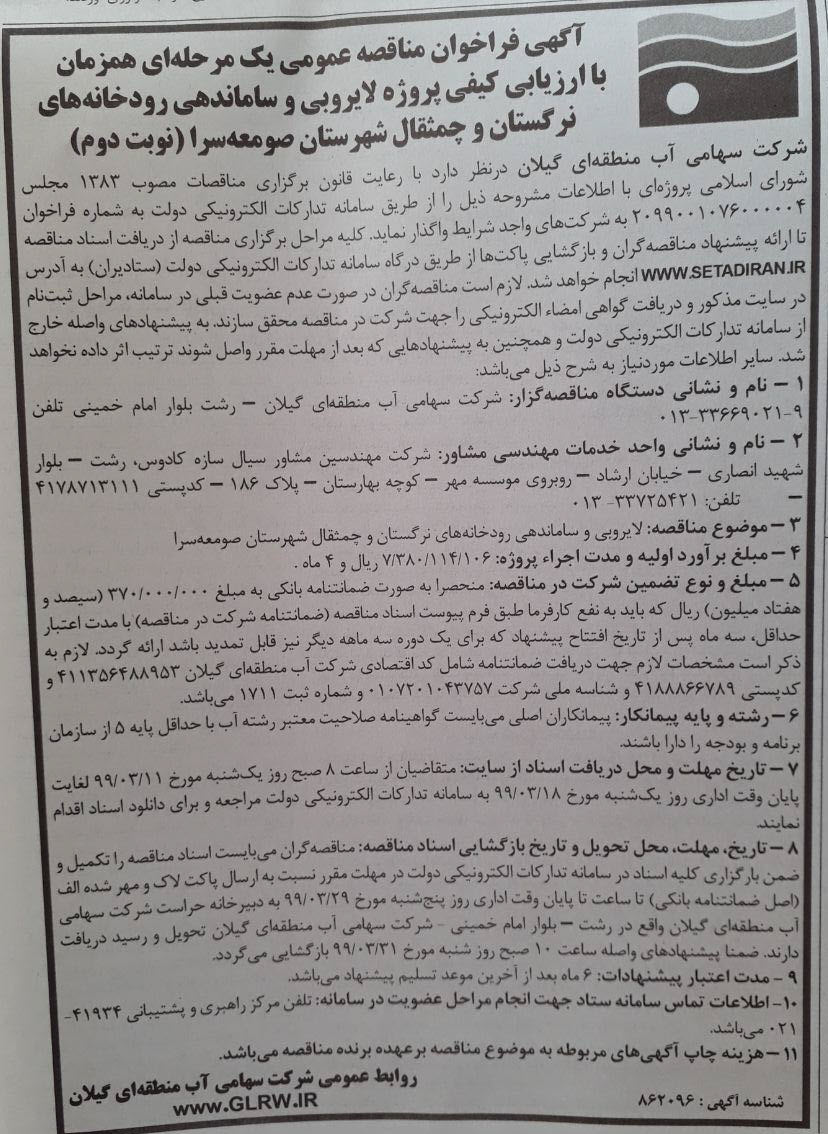 آگهی فراخوان مناقصه عمومی یک مرحله‌ای همزمان
با ارزیابی کیفی پروژه لایروبی و ساماندهی رودخانه‌های
نرگستان و چمثقال شهرستان صومعه‌سرا (نوبت دوم)
شرکت سهامی آب منطقه‌ای گیلان درنظر دارد با رعایت قانون برگزاری مناقصات مصوب ۱۳۸۳ مجلس
شورای اسلامی پروژه‌ای با اطلاعات مشروحه ذیل را از طریق سامانه تدارکات الکترونیکی دولت به شماره فراخوان
۲۰۹۹۰۰۱۰۷۶۰۰۰۰۰۴ به شرکت‌های واجد شرایط واگذار نماید. کلیه مراحل برگزاری مناقصه از دریافت اسناد مناقصه
تا ارائه پیشنهاد مناقصه‌گران و بازگشایی پاکت‌ها از طریق درگاه سامانه تدارکات الکترونیکی دولت (ستادیران) به آدرس
WWW.SETADIRAN.IR انجام خواهد شد. لازم است مناقصه‌گران در صورت عدم عضویت قبلی در سامانه، مراحل ثبت‌نام
در سایت مذکور و دریافت گواهی امضاء الکترونیکی را جهت شرکت در مناقصه محقق سازند. به پیشنهادهای واصله خارج
از سامانه تدارکات الکترونیکی دولت و همچنین به پیشنهادهایی که بعد از مهلت مقرر واصل شوند ترتیب اثر داده نخواهد
شد. سایر اطلاعات موردنیاز به شرح ذیل می‌باشد:
۱ – نام و نشانی دستگاه مناقصه‌گزار: شرکت سهامی آب منطقه‌ای گیلان – رشت بلوار امام خمینی تلفن
۹-۳۳۶۶۹۰۲۱-۰۱۳
۲ – نام و نشانی واحد خدمات مهندسی مشاور: شرکت مهندسین مشاور سیال سازه کادوس، رشت – بلوار
شهید انصاری – خیابان ارشاد – روبروی موسسه مهر – کوچه بهارستان – پلاک ۱۸۶ – کدپستی ۴۱۷۸۷۱۳۱۱۱
– تلفن: ۳۳۷۲۵۴۲۱- ۰۱۳
۳ – موضوع مناقصه: لایروبی و ساماندهی رودخانه‌های نرگستان و چمثقال شهرستان صومعه‌سرا
۴ – مبلغ برآورد اولیه و مدت اجراء پروژه: ۷/۳۸۰/۱۱۴/۱۰۶ ریال و ۴ ماه .
۵ – مبلغ و نوع تضمین شرکت در مناقصه: منحصرا به صورت ضمانتنامه بانکی به مبلغ ۳۷۰/۰۰۰/۰۰۰ (سیصد و
هفتاد میلیون) ریال که باید به نفع کارفرما طبق فرم پیوست اسناد مناقصه (ضمانتنامه شرکت در مناقصه) با مدت اعتبار
حداقل، سه ماه پس از تاریخ افتتاح پیشنهاد که برای یک دوره سه ماهه دیگر نیز قابل تمدید باشد ارائه گردد. لازم به
ذکر است مشخصات لازم جهت دریافت ضمانتنامه شامل کد اقتصادی شرکت آب منطقه‌ای گیلان ۴۱۱۳۵۶۴۸۸۹۵۳ و
کدپستی ۴۱۸۸۸۶۶۷۸۹ و شناسه ملی شرکت ۰۱۰۷۲۰۱۰۴۳۷۵۷ و شماره ثبت ۱۷۱۱ می‌باشد.
۶ – رشته و پایه پیمانکار: پیمانکاران اصلی می‌بایست گواهینامه صلاحیت معتبر رشته آب با حداقل پایه ۵ از سازمان
برنامه و بودجه را دارا باشند.
۷ – تاریخ مهلت و محل دریافت اسناد از سایت: متقاضیان از ساعت ۸ صبح روز یک‌شنبه مورخ ۹۹/۰۳/۱۱ لغایت
پایان وقت اداری روز یک‌شنبه مورخ ۹۹/۰۳/۱۸ به سامانه تدارکات الکترونیکی دولت مراجعه و برای دانلود اسناد اقدام
نمایند.
۸ – تاریخ، مهلت، محل تحویل و تاریخ بازگشایی اسناد مناقصه: مناقصه‌گران می‌بایست اسناد مناقصه را تکمیل و
ضمن بارگزاری کلیه اسناد در سامانه تدارکات الکترونیکی دولت در مهلت مقرر نسبت به ارسال پاکت لاک و مهر شده الف
(اصل ضمانتنامه بانکی) تا ساعت تا پایان وقت اداری روز پنج‌شنبه مورخ ۹۹/۰۳/۲۹ به دبیرخانه حراست شرکت سهامی
آب منطقه‌ای گیلان واقع در رشت – بلوار امام خمینی - شرکت سهامی آب منطقه‌ای گیلان تحویل و رسید دریافت
دارند. ضمنا پیشنهادهای واصله ساعت ۱۰ صبح روز شنبه مورخ ۹۹/۰۳/۳۱ بازگشایی می‌گردد.
۹ – مدت اعتبار پیشنهادات: ۶ ماه بعد از آخرین موعد تسلیم پیشنهاد می‌باشد.
۱۰- اطلاعات تماس سامانه ستاد جهت انجام مراحل عضویت در سامانه: تلفن مرکز راهبری و پشتیبانی ۴۱۹۳۴-
۰۲۱ می‌باشد.
۱۱ – هزینه چاپ آگهی‌های مربوطه به موضوع مناقصه برعهده برنده مناقصه می‌باشد.
روابط عمومی شرکت سهامی آب منطقه‌ای گیلان
www.GLRW.IR
شناسه آگهی : ۸۶۲۰۹۶